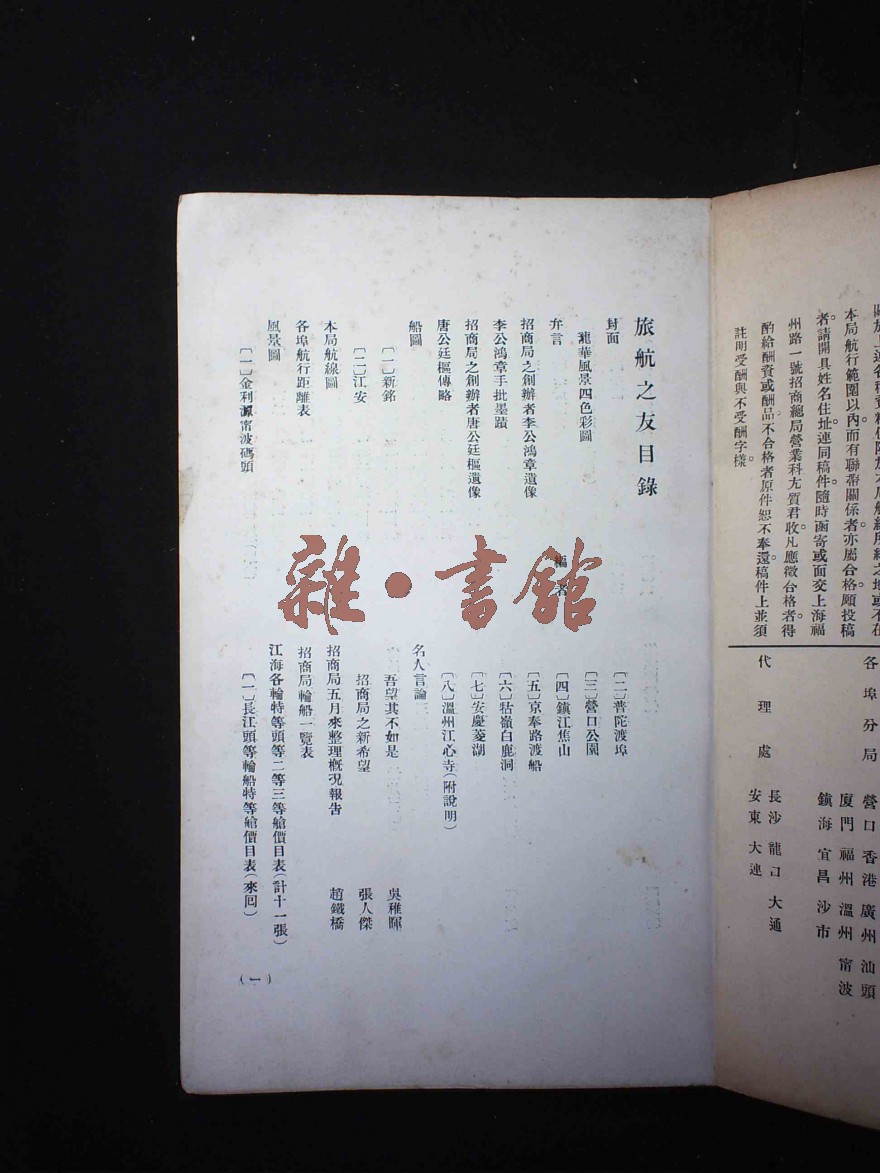 本局航行範圍以內而有聯帶關係者亦屬合格願投稿
者。請開具姓名住址連同稿件隨時函寄或面交上海福
州路一號招商總局營業科尤質君收凡應徵合格者得
酌給酬資或酬品不合格者原件恕不奉還。稿件上並須
註明受酬與不受酬字樣。
各埠分局
營口 香港 廣州 汕頭
廈門 福州 溫州 甯波
鎮海 宜昌 沙市
代理處
長沙 龍口 大通
安東 大連
旅航之友目錄
封面
龍華風景四色彩圖
弁言
編者
招商局之創辦者李公鴻章遺像
李公鴻章手批墨蹟
招商局之創辦者唐公廷樞遺像
唐公廷樞傳略
船圖
〔一〕新銘
〔二〕江安
本局航線圖
各埠航行距離表
風景圖
〔一〕金利源甯波碼頭
〔二〕普陀渡埠
〔三〕營口公園
〔四〕鎮江焦山
〔五〕京奉路渡船
〔六〕牯嶺白鹿洞
〔七〕安慶菱湖
〔八〕溫州江心寺(附說明)
名人言論
吾望其不如是 吳稚暉
招商局之新希望 張人傑
招商局五月來整理概況報告 趙鐵橋
招商局輪船一覽表
江海各輪特等頭等二等三等艙價目表(計十一張)
〔一〕長江頭等輪船特等艙價目表(來回)
(一)
雜·書館